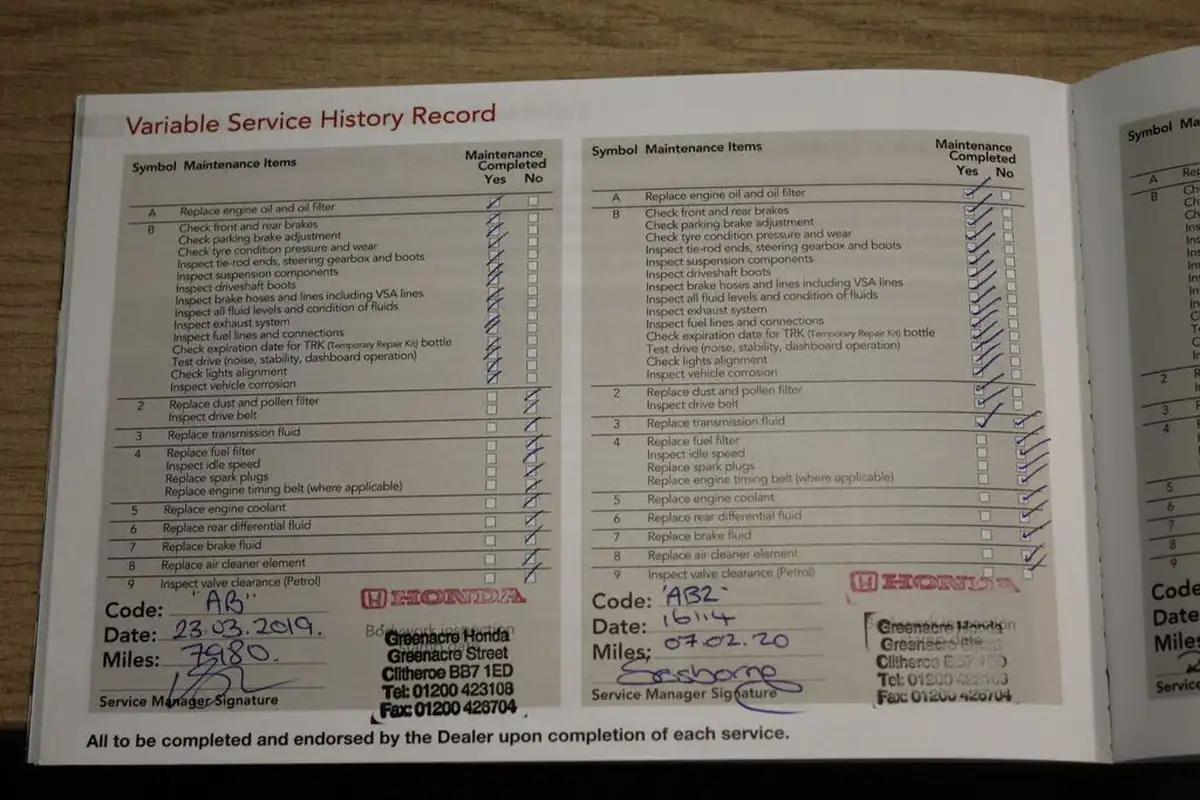 Variable Service History Record
Symbol Maintenance Items Maintenance Completed
Yes No
A Replace engine oil and oil filter
B Check front and rear brakes
Check parking brake adjustment
Check tyre condition pressure and wear
Inspect tie-rod ends, steering gearbox and boots
Inspect suspension components
Inspect driveshaft boots
Inspect brake hoses and lines including VSA lines
Inspect all fluid levels and condition of fluids
Inspect exhaust system
Inspect fuel lines and connections
Check expiration date for TRK (Temporary Repair Kit) bottle
Test drive (noise, stability, dashboard operation)
Check lights alignment
Inspect vehicle corrosion
2 Replace dust and pollen filter
Inspect drive belt
3 Replace transmission fluid
4 Replace fuel filter
Inspect idle speed
Replace spark plugs
Replace engine timing belt (where applicable)
5 Replace engine coolant
6 Replace rear differential fluid
7 Replace brake fluid
8 Replace air cleaner element
9 Inspect valve clearance (Petrol)
Code: "AB"
Date: 23.03.2019.
Miles: 7980.
Service Manager Signature
HONDA
Bodywork inspection
Greenacre Honda
Greenacre Street
Clitheroe BB7 1ED
Tel: 01200 423108
Fax: 01200 428704
Symbol Maintenance Items Maintenance Completed
Yes No
A Replace engine oil and oil filter
B Check front and rear brakes
Check parking brake adjustment
Check tyre condition pressure and wear
Inspect tie-rod ends, steering gearbox and boots
Inspect suspension components
Inspect driveshaft boots
Inspect brake hoses and lines including VSA lines
Inspect all fluid levels and condition of fluids
Inspect exhaust system
Inspect fuel lines and connections
Check expiration date for TRK (Temporary Repair Kit) bottle
Test drive (noise, stability, dashboard operation)
Check lights alignment
Inspect vehicle corrosion
2 Replace dust and pollen filter
Inspect drive belt
3 Replace transmission fluid
4 Replace fuel filter
Inspect idle speed
Replace spark plugs
Replace engine timing belt (where applicable)
5 Replace engine coolant
6 Replace rear differential fluid
7 Replace brake fluid
8 Replace air cleaner element
9 Inspect valve clearance (Petrol)
Code: 'AB2'
Date: 16114
Miles: 07.02.20
Service Manager Signature
HONDA
Greenacre Honda
Greenacre
Clitheroe
Tel: 01200
Fax: 01200 428704
All to be completed and endorsed by the Dealer upon completion of each service.
Symbol
A
B
2
3
4
5
6
7
8
9
Code
Date
Miles
Service